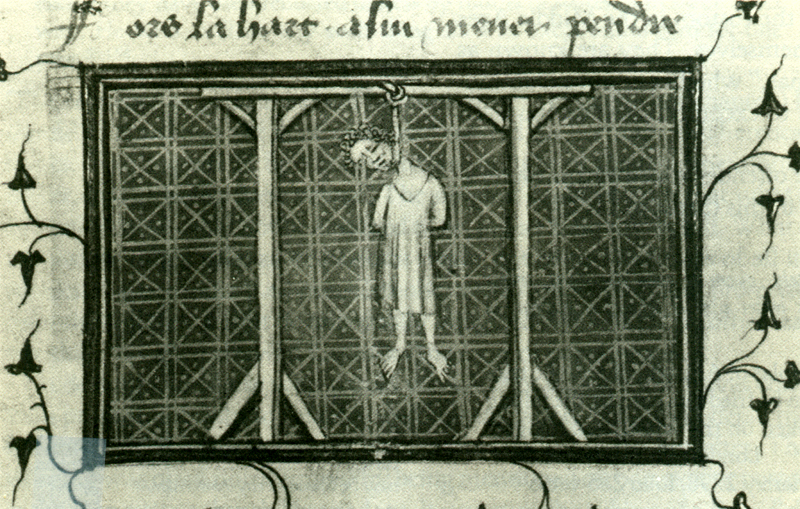 ors la hart a lui mener pendre